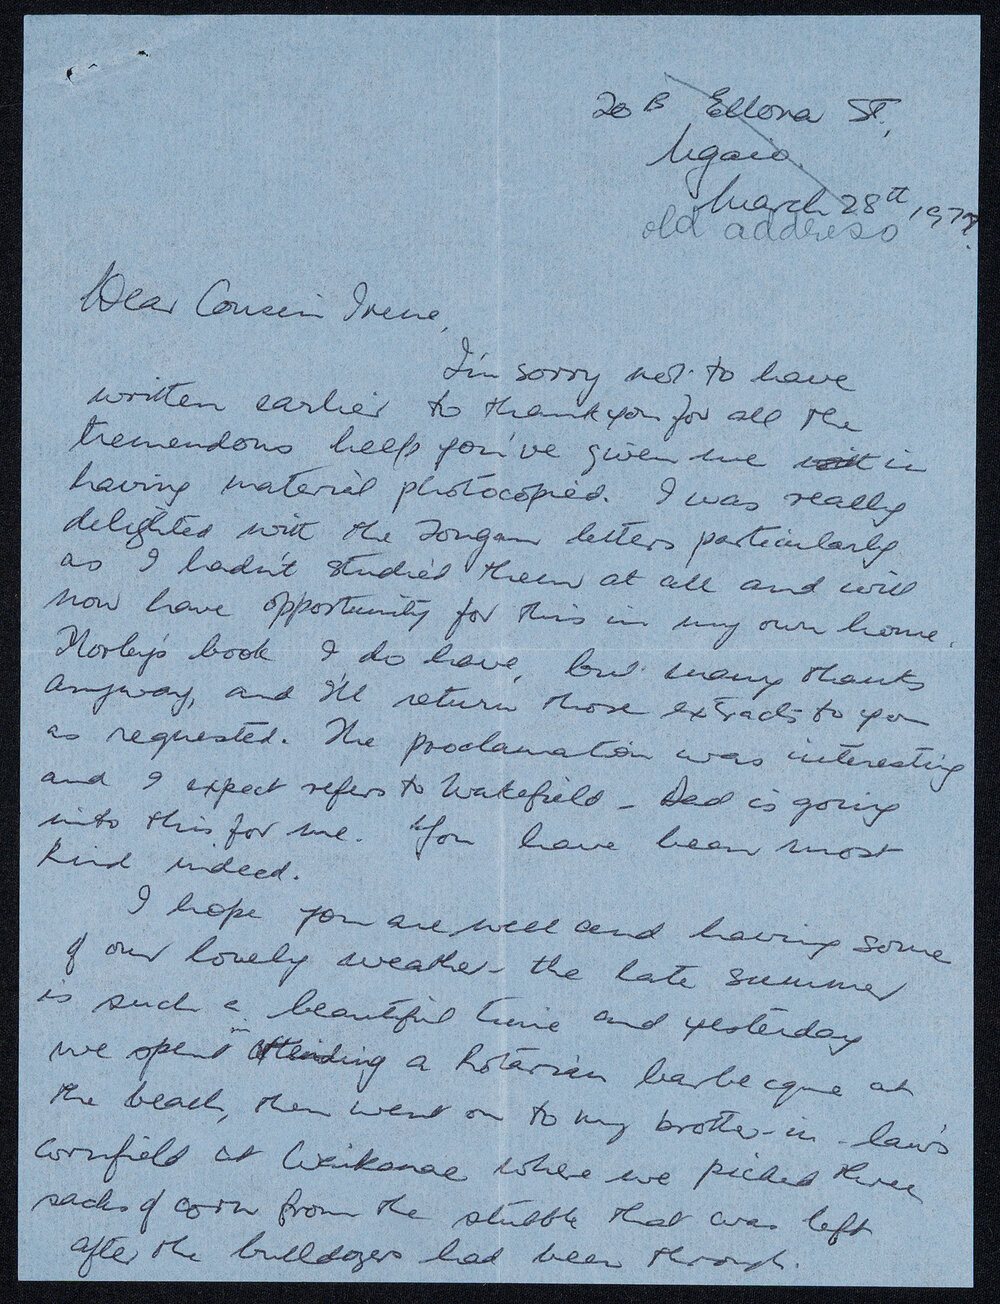 20 B Ellora St,
Ngaio.
March 28th, 197
old address
Dear Cousin Irene,
I'm sorry not to have
written earlier to thank you for all the
tremendous help you've given me in
having material photocopied. I was really
delighted with the Tongan letters particularly
as I hadn't studied them at all and will
now have opportunity for this in my own home.
Morley's book I do have, but many thanks
anyway, and I'll return those extracts to you
as requested. The proclamation was interesting
and I expect refers to Wakefield - Dad is going
into this for me. You have been most
kind indeed.
I hope you are well and having some
of our lovely weather - the late summer
is such a beautiful time and yesterday
we spent attending a Rotarian barbecque at
the beach, then went on to my brother-in-law's
cornfield at Waikanae where we picked three
sacks of corn from the stubble that was left
after the bulldozers had been through.